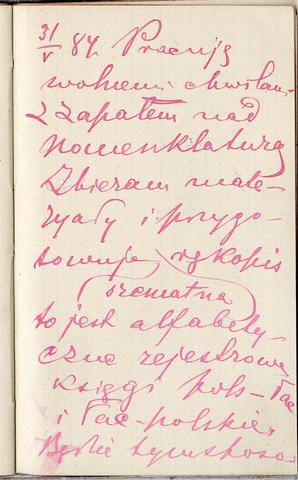 31/V 84. Pracuję
wolnemi chwilami
z zapałem nad
nomenklaturą
Zbieram mate-
ryjały i przygo-
towuję rękopis
szematna
to jest alfabety-
czne rejestrowe
księgi pols-łac
i łac-polskie.
Będzie tymczaso-